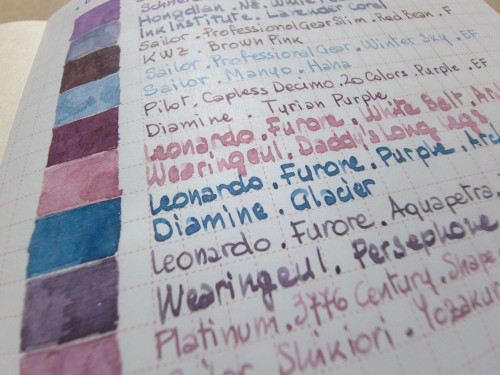 Hongdian. No.
Ink Institute. Lavender Coral
Sailor. Professional Gear Slim. Red Bean. F
KWZ. Brown Pink
Sailor. Professional Gear. Winter Sky. EF
Sailor. Manyo. Hana
Pilot. Capless Decimo. 20 Colors. Purple. EF
Diamine. Tyrian Purple
Leonardo. Furore. White Salt.
Wearingeul. Daddy's Long Legs
Leonardo. Furore. Purple.
Diamine. Glacier
Leonardo. Furore. Aquapetra.
Wearingeul. Persephone
Platinum. 3776 Century. Shape
Sailor Shikiori. Yozakura